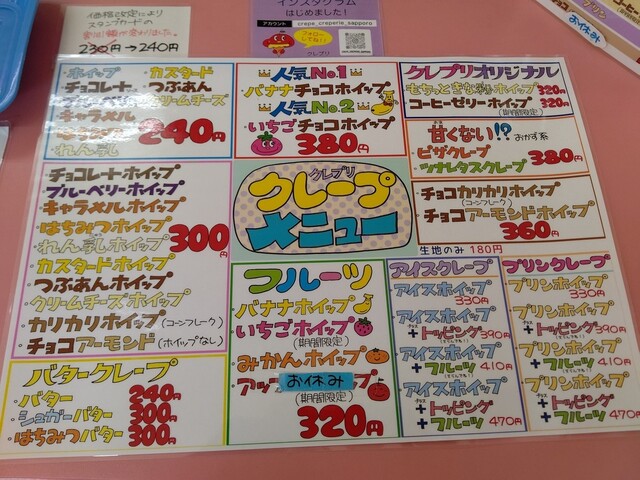 価格改定により
スタンプカードの
割引額が変わりました。
230円→240円
インスタグラム
はじめました!
アカウント crepe_creperie_sapporo
フォローしてね!
クレプリ
お休み
プリン
・ホイップ ・カスタード
・チョコレート ・つぶあん
・ブルーベリー ・クリームチーズ
・キャラメル
・はちみつ
・れん乳
240円
人気No.1
・バナナチョコホイップ
人気No.2
・いちごチョコホイップ
380円
クレプリオリジナル
・もちっときな粉ホイップ 320円
・コーヒーゼリーホイップ 320円
(期間限定)
甘くない!? おかず系
・ピザクレープ
・ツナレタスクレープ
380円
・チョコカリカリホイップ
(コーンフレーク)
・チョコアーモンドホイップ
360円
生地のみ 180円
・チョコレートホイップ
・ブルーベリーホイップ
・キャラメルホイップ
・はちみつホイップ
・れん乳ホイップ
・カスタードホイップ
・つぶあんホイップ
・クリームチーズホイップ
・カリカリホイップ(コーンフレーク)
・チョコアーモンド(ホイップなし)
300円
クレプリ
クレープ
メニュー
バタークレープ
・バター 240円
・シュガーバター 300円
・はちみつバター 300円
フルーツ
・バナナホイップ
・いちごホイップ
(期間限定)
・みかんホイップ
・アップ
お休み
(期間限定)
320円
アイスクレープ
・アイスホイップ
330円
・アイスホイップ
プラス
+トッピング 390円
・アイスホイップ
+フルーツ 410円
・アイスホイップ
プラス
+トッピング
+フルーツ 470円
プリンクレープ
・プリンホイップ
330円
・プリンホイップ
プラス
+トッピング 390円
・プリンホイップ
+フルーツ 410円
・プリンホイップ
プラス
+トッピング
+フルーツ 470円